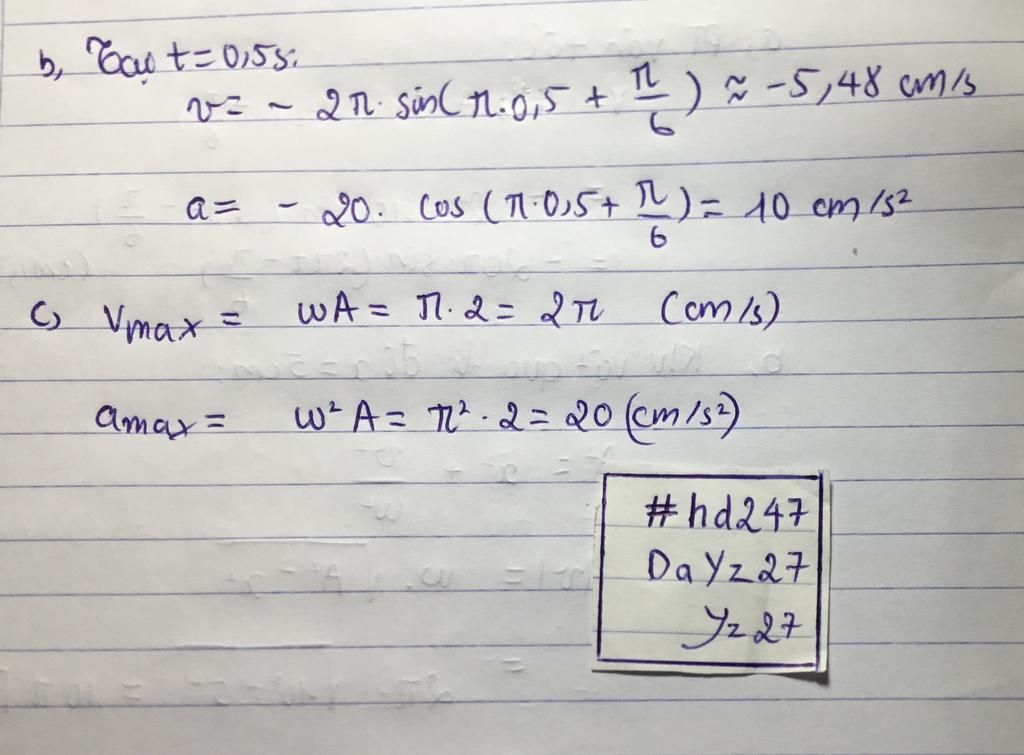 b, Tại t = 0,5s:
v = - 2π. sin(π.0,5 + π/6) ≈ -5,48 cm/s
a = - 20. cos(π.0,5 + π/6) = 10 cm/s²
c, Vmax = wA = π.2 = 2π (cm/s)
amax = w²A = π².2 = 20 (cm/s²)
#hd247
DaYz27
Yz27